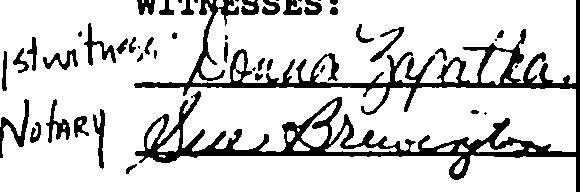 WITNESSES:
1st witness Donna Zapatka
Notary Sue Brewington